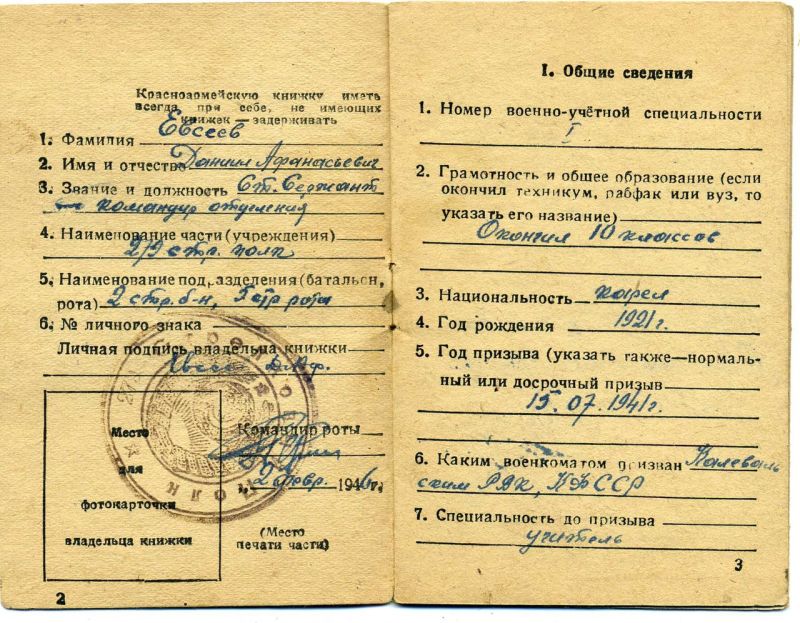 Красноармейскую книжку иметь
всегда при себе, не имеющих
книжек — задерживать
1. Фамилия Евсеев
2. Имя и отчество Даниил Афанасьевич
3. Звание и должность Ст. Сержант
командир отделения
4. Наименование части (учреждения)
219 стр. полк
5. Наименование подразделения (батальон,
рота) 2 стр. б-н, 5 стр рота
6. № личного знака
Личная подпись владельца книжки
Место
для
фотокарточки
владельца книжки
Командир роты
2 февр. 194 г.
(Место
печати части)
2
I. Общие сведения
1. Номер военно-учётной специальности
I
2. Грамотность и общее образование (если
окончил техникум, рабфак или вуз, то
указать его название)
Окончил 10 классов
3. Национальность карел
4. Год рождения 1921 г.
5. Год призыва (указать также—нормаль-
ный или досрочный призыв
15.07.1941 г.
6. Каким военкоматом призван Калеваль
ским РВК, КФССР
7. Специальность до призыва
учитель
3